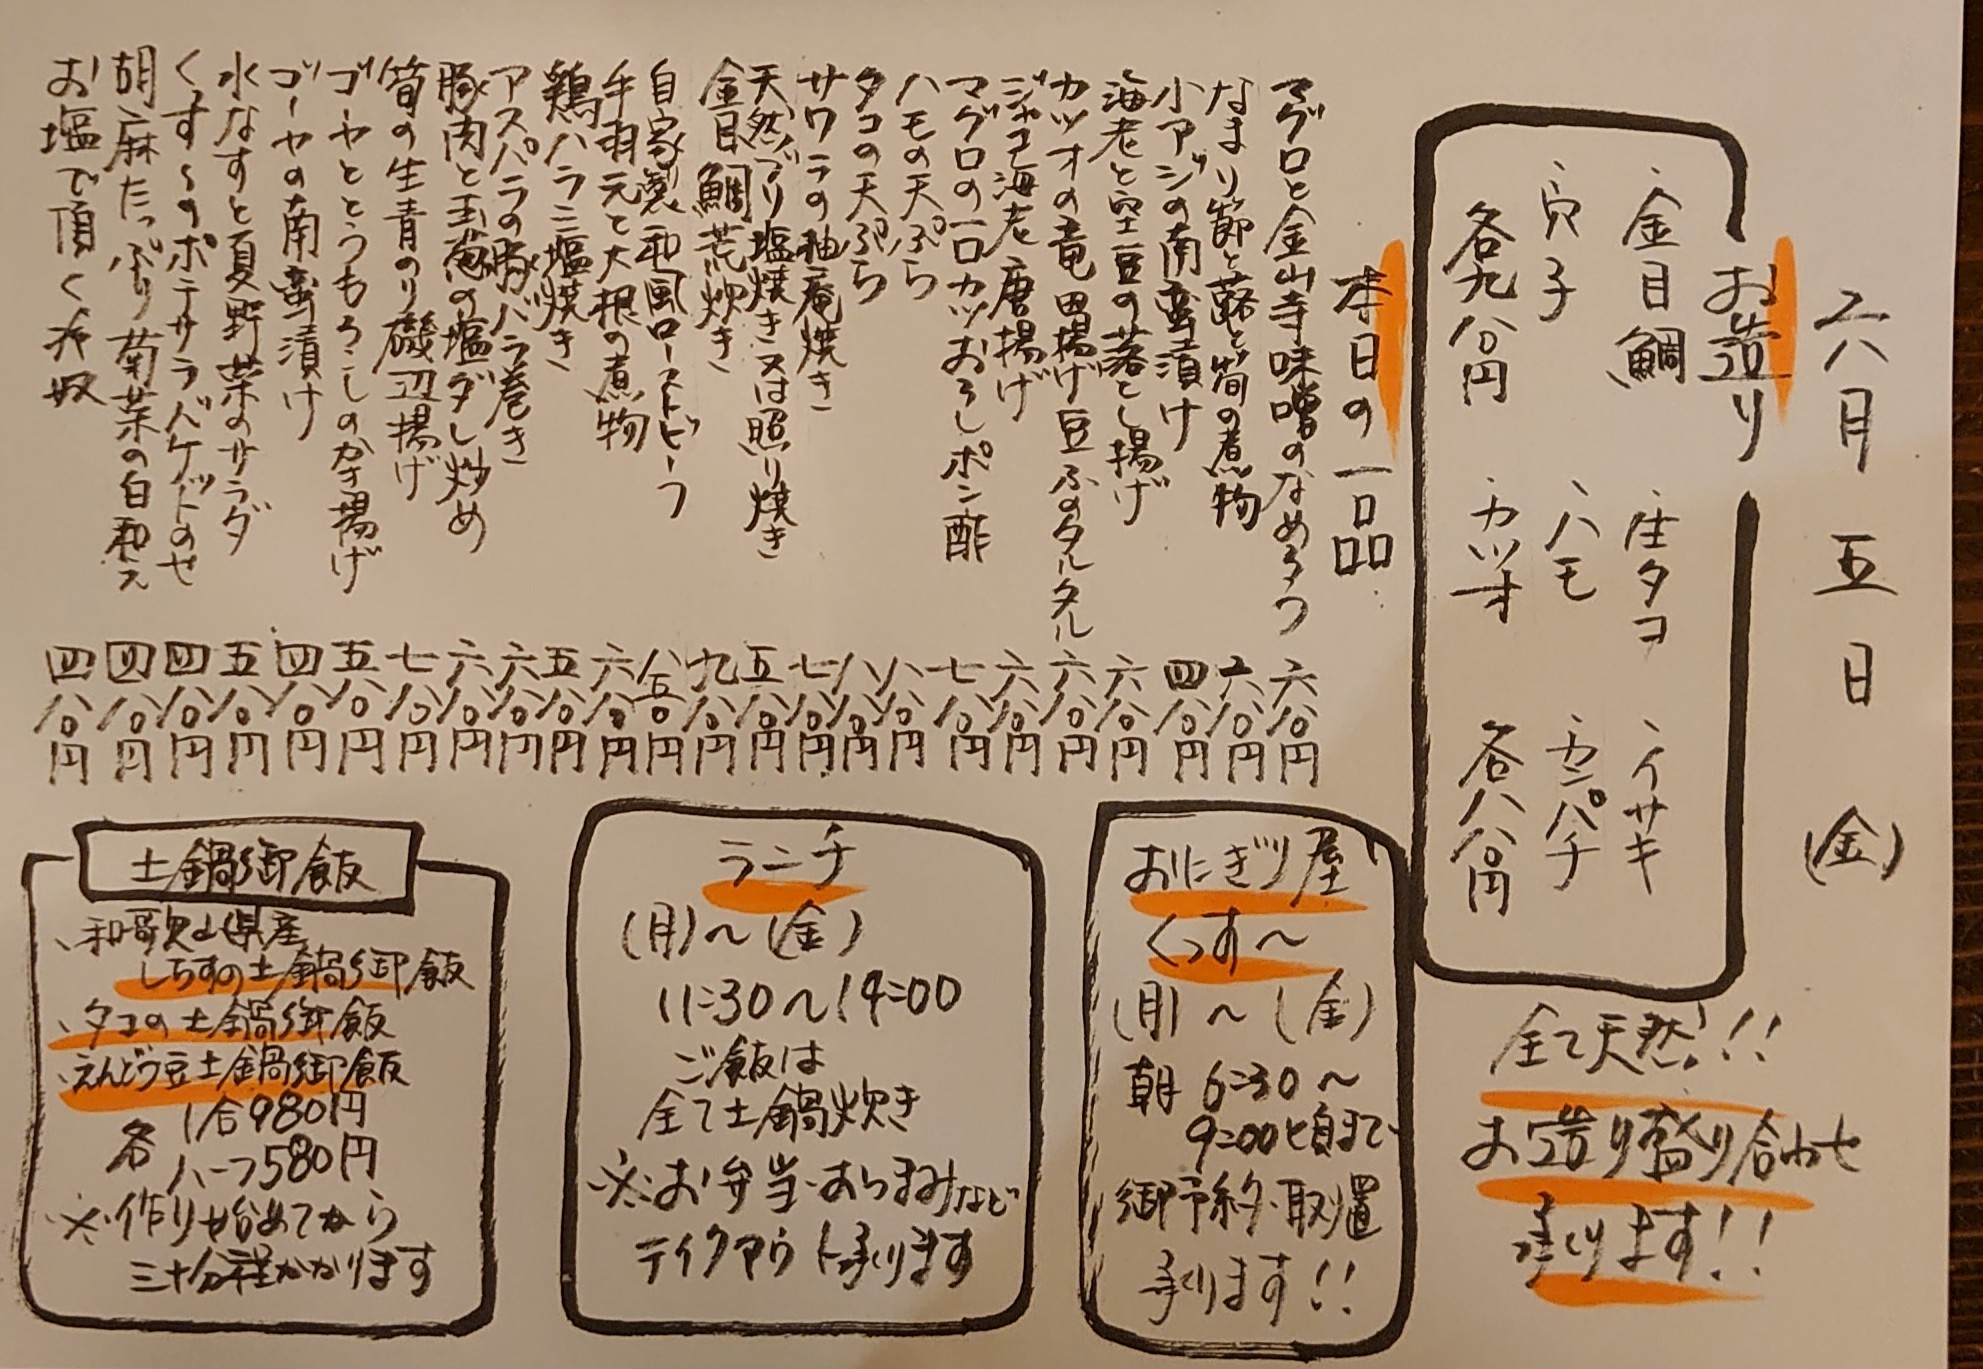 六月五日(金)
お造り
、金目鯛 、活タコ 、イサキ
、穴子 、ハモ 、カンパチ
各九八〇円 、カツオ 各八八〇円
全て天然!!
お造り盛り合わせ
承ります!!
本日の一品
マグロと金山寺味噌のなめろう 六八〇円
なまり節と蕗と筍の煮物 六八〇円
小アジの南蛮漬け 四八〇円
海老と空豆の落とし揚げ 六八〇円
カツオの竜田揚げ豆ふのタルタル 六八〇円
ジャコ海老唐揚げ 六八〇円
マグロの一口カツおろしポン酢 七八〇円
ハモの天ぷら 八八〇円
タコの天ぷら 八八〇円
サワラの柚庵焼き 七八〇円
天然ブリ塩焼き又は照り焼き 五八〇円
金目鯛荒炊き 九八〇円
自家製和風ローストビーフ 八五〇円
手羽元と大根の煮物 六八〇円
鶏ハラミ塩焼き 五八〇円
アスパラの豚バラ巻き 六八〇円
豚肉と玉葱の塩ダレ炒め 六八〇円
筍の生青のり磯辺揚げ 七八〇円
ゴーヤととうもろこしのかき揚げ 五八〇円
ゴーヤの南蛮漬け 四八〇円
水なすと夏野菜のサラダ 五八〇円
くっす〜のポテサラバケットのせ 四八〇円
胡麻たっぷり菊菜の白和え 四八〇円
お塩で頂く冷奴 四八〇円
おにぎり屋
くっす〜
(月)〜(金)
朝 6:30〜
9:00頃まで
御予約・取置
承ります!!
ランチ
(月)〜(金)
11:30〜14:00
ご飯は
全て土鍋炊き
※お弁当・おつまみなど
テイクアウト承ります
土鍋御飯
、和歌山県産
しらすの土鍋御飯
、タコの土鍋御飯
、えんどう豆土鍋御飯
各 1合980円
ハーフ580円
※作り始めてから
三十分程かかります